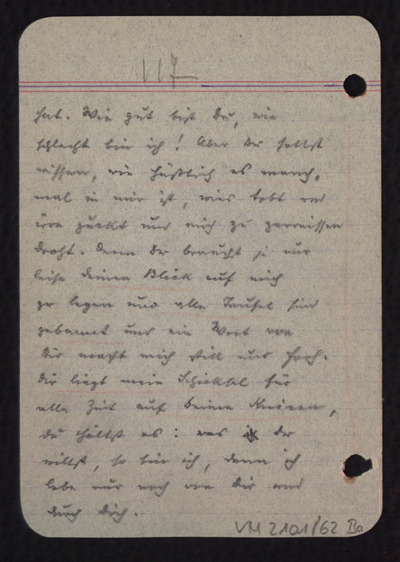 117
hat. Wie gut bist Du, wie
schlecht bin ich! Aber Du sollst
wissen, wie häßlich es manch-
mal in mir ist, wies tobt und
irre zuckt und mich zu zerreissen
droht. Denn Du brauchst ja nur
leise Deinen Blick auf mich
zu legen und alle Teufel sind
gebannt und ein Wort von
Dir macht mich still und froh.
Dir liegt mein Schicksal für
alle Zeit auf Deinen Knieen,
du hältst es: was Du
willst, so bin ich, denn ich
lebe nur noch von Dir und
durch Dich.
VM 2101/62 Ba